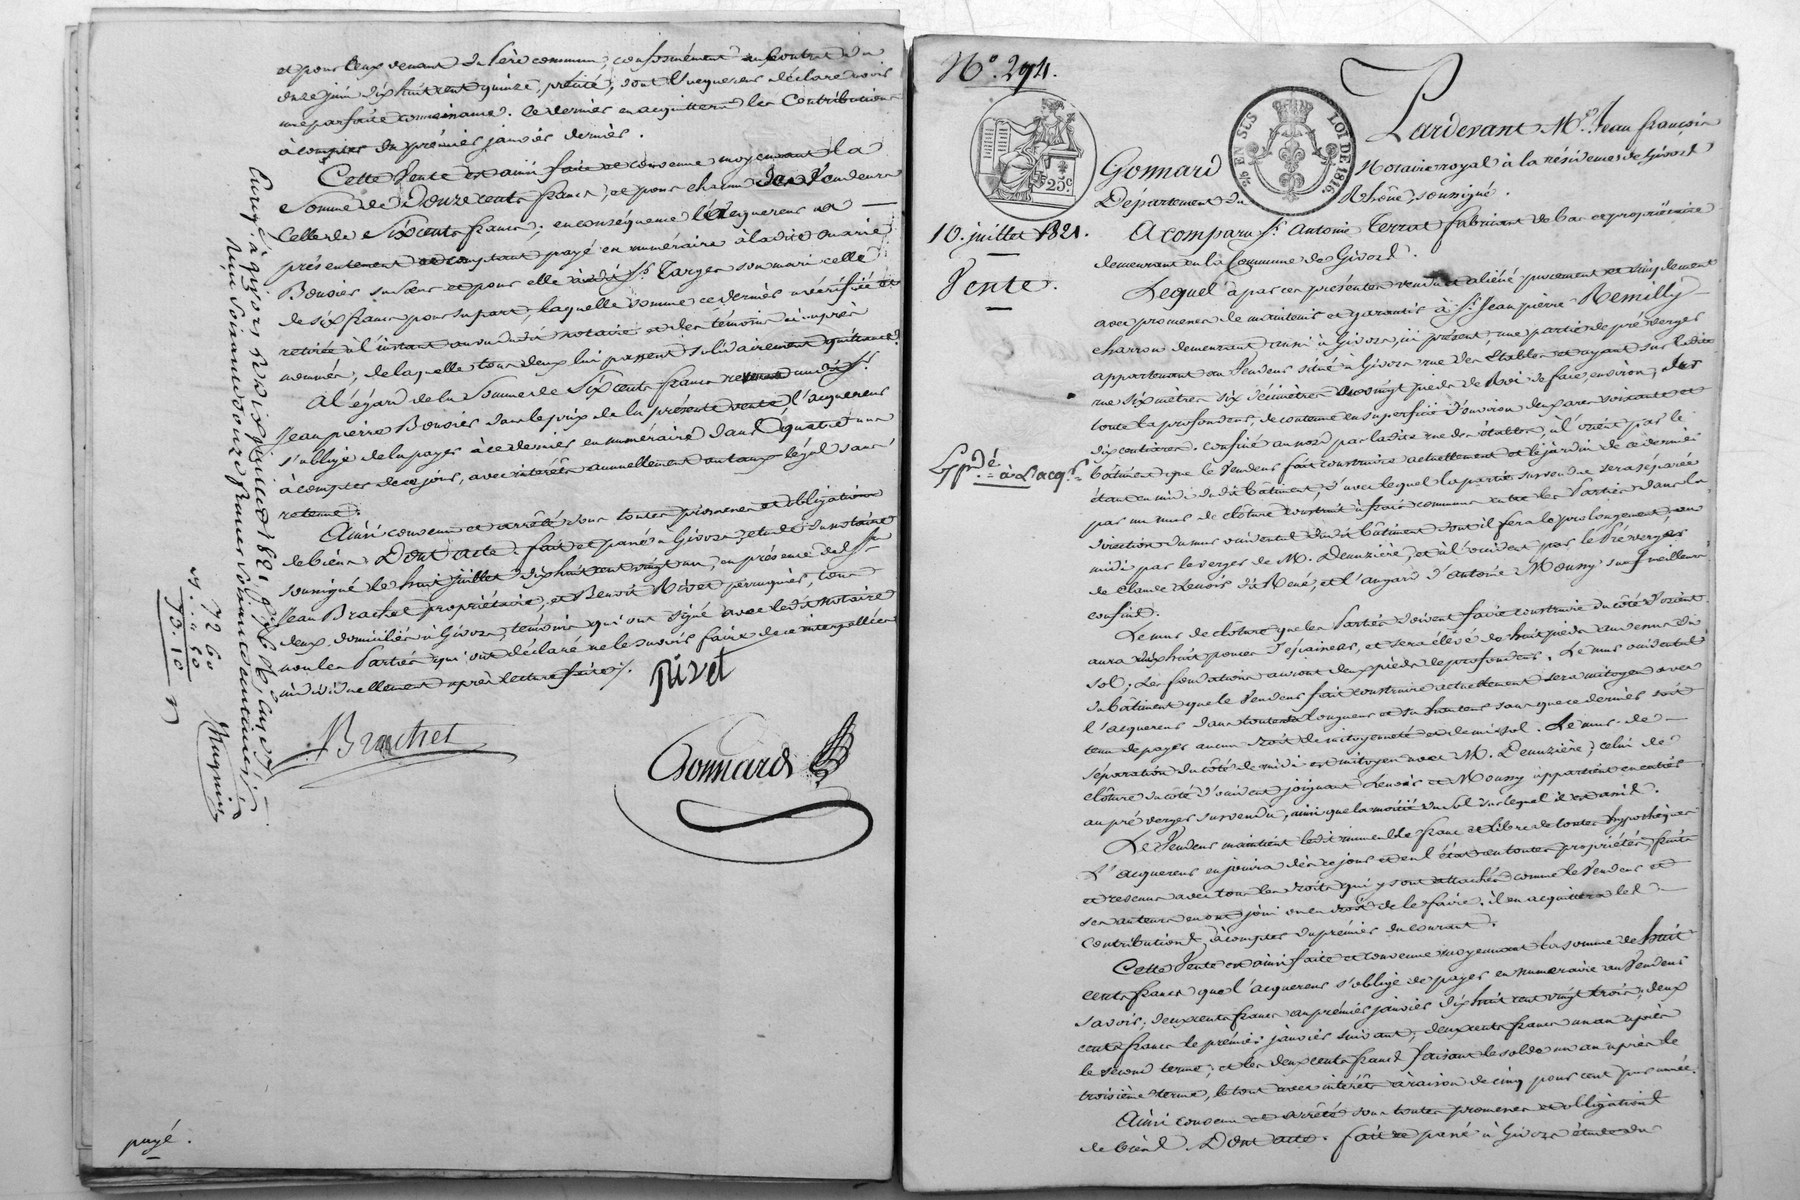 et pour ceux venant du père commun, conformément au contrat du
onze juin dix huit cent quinze, précité, dont l'acquereur déclare avoir
une parfaite connaissance. ce dernier en acquittera les Contributions
à compter du premier janvier dernier.
Cette Vente est ainsi faite et convenue moyennant la
Somme de Douze cents francs, et pour chacun des Vendeurs
Celle de Six cents francs; en conséquence l'acquereur a
présentement et comptant payé en numéraire à ladite Marie
Bouvier sa sœur et pour elle audit Sr. Targer son mari celle
de six francs pour sa part, laquelle somme ce dernier a vérifiée et
retirée à l'instant au vu dudit notaire et des témoins ci-après
nommés, de laquelle tous deux lui passent solidairement quittance.
A l'égard de la Somme de Six cents francs revenant audit Sr.
Jean pierre Bouvier dans le prix de la présente vente l'acquereur
s'oblige de la payer à ce dernier en numéraire dans quatre ans
à compter de ce jour, avec intérêts annuellement au taux légal sans
retenue.
Ainsi convenu et arrêté sous toutes promesses et obligations
de biens. Dont acte. fait et passé à Givors, etude du notaire
soussigné le huit juillet dix huit cent vingt un, en présence de Srs
Jean Brachet propriétaire, et Benoit Rivet perruquier, tous
deux domiciliés à Givors, témoins qui ont signé avec ledit notaire
non les Parties qui ont déclaré ne le savoir faire de ce interpellées
individuellement après lecture faite.
Rivet
JBrachet
Gonnard
72 60
73. 10
payé.
N.º 294.
25c
EN SUS
LOI DE 1816.
Pardevant Me. Jean françois
Gonnard Notaire royal à la résidence de Givors
Département du Rhône, soussigné.
10. juillet 1821.
Vente.
A comparu Sr. Antoine Terrat fabricant de bas et propriétaire
demeurant en la Commune de Givors.
Lequel a par ces présentes vendu et aliéné purement et simplement
avec promesse de maintenir et garantir à Sr. Jean pierre Remilly
charron demeurant aussi à Givors, ici présent, une partie de pré verger
appartenant au Vendeur situé à Givors rue des Etables et ayant sur ladite
rue six mètres six décimètres ou vingt pieds de Roi de face, environ, sur
toute la profondeur, de contenue en superficie d'environ deux ares soixante et
dix centiares. confiné au nord par ladite rue des étables, à l'orient par le
Gr.dé à l'acqr.
bâtiment que le Vendeur fait construire actuellement et le jardin de ce dernier
étant au midi dudit bâtiment, d'avec lequel la partie susvendue sera séparée
par un mur de clôture construit à frais communs entre les Parties dans la
direction du mur occidental dudit bâtiment dont il fera le prolongement, au
midi par le verger de M. Deuzière, et à l'occident par le Pré verger
de Claude Renoir dit René, et l'angard d'antoine Moussy sauf meilleurs
confins.
Le mur de clôture que les Parties doivent faire construire du côté d'orient
aura dix huit pouces d'épaisseur, et sera élevé de huit pieds au dessus du
sol; Les fondations auront deux pieds de profondeur. Le mur occidental
du bâtiment que le Vendeur fait construire actuellement sera mitoyen avec
l'acquereur dans toute sa longueur et sa hauteur sans que ce dernier soit
tenu de payer aucun droit de mitoyenneté et de mi-sol. Le mur de
séparation du côté de midi est mitoyen avec M. Deuzière; celui de
clôture du côté d'occident joignant Renoir et Moussy appartient en entier
au pré verger susvendu, ainsi que la moitié du sol sur lequel il est assis.
Le Vendeur maintient ledit immeuble franc et libre de toutes hypothèques
L'acquereur en jouira dès ce jour et en l'état en toutes propriétés, fruits
et revenus avec tous les droits qui y sont attachés comme le Vendeur et
ses auteurs en ont joui ou eu droit de le faire. il en acquittera les
Contributions, à compter du premier du courant.
Cette Vente est ainsi faite et convenue moyennant la somme de huit
cents francs que l'acquereur s'oblige de payer en numéraire au Vendeur
savoir, deux cents francs au premier janvier dix huit cent vingt trois, deux
cents francs le premier janvier suivant, deux cents francs un an après
le second terme, et les deux cents francs faisant le solde un an après le
troisième terme, le tout avec intérêts à raison de cinq pour cent par année.
Ainsi convenu et arrêté sous toutes promesses et obligations
de biens. Dont acte. fait et passé à Givors étude du